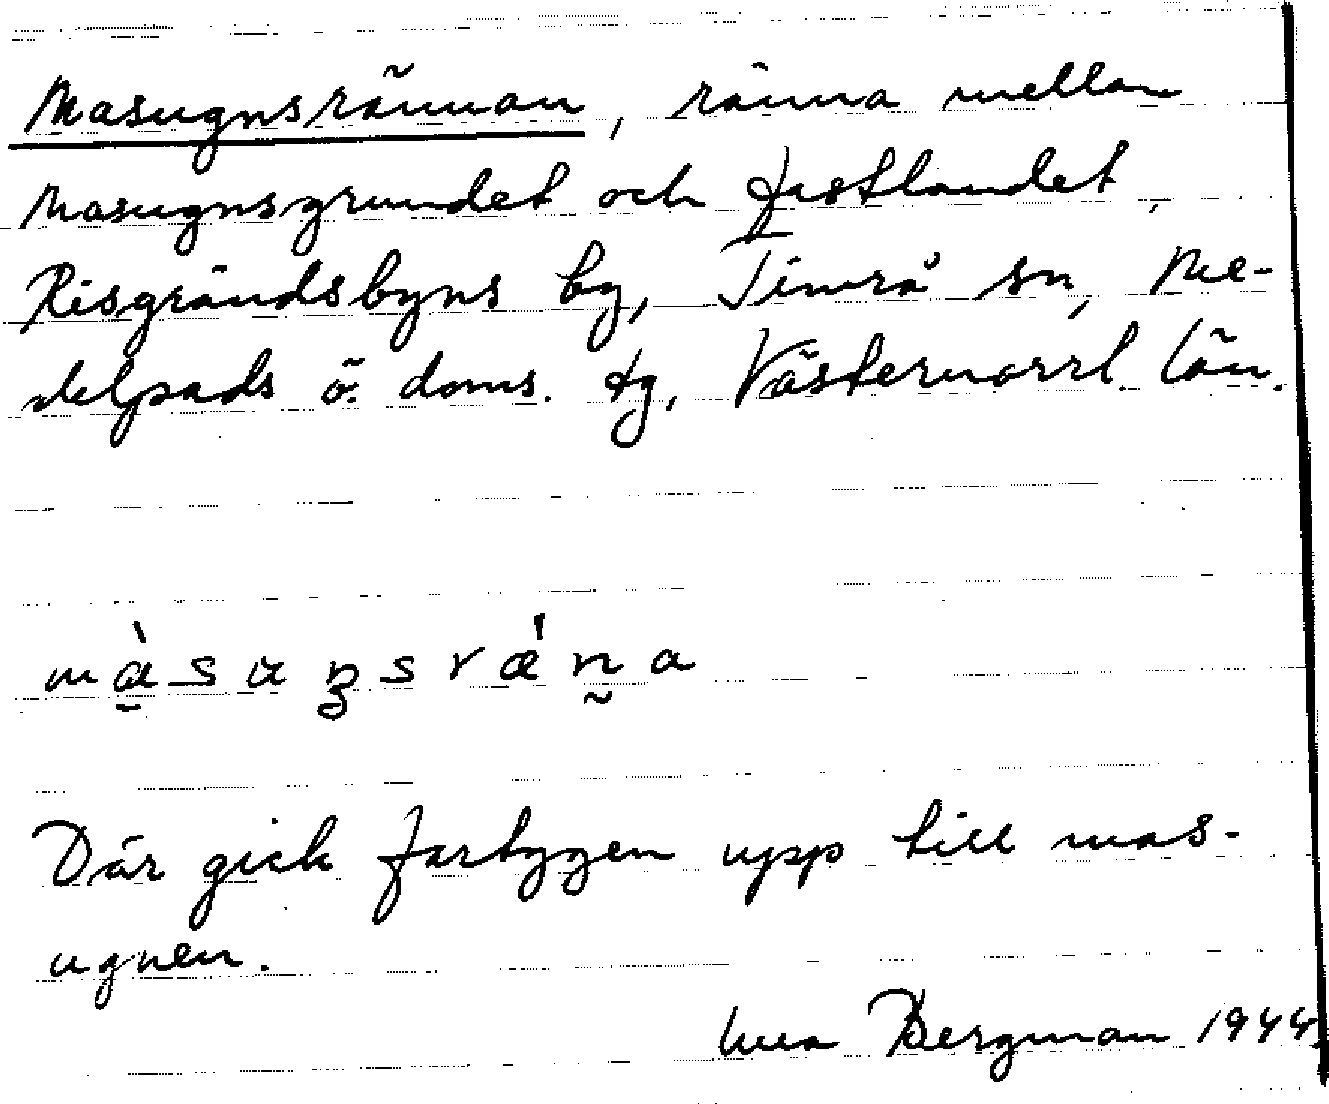 Masugnsrännan, ränna mellan
Masugnsgrundet och fastlandet,
Risgrändsbyns by, Timrå sn, Me-
delpads ö. doms. tg, Västernorrl. län.
Där gick fartygen upp till mas-
ugnen.
Bergman 1944